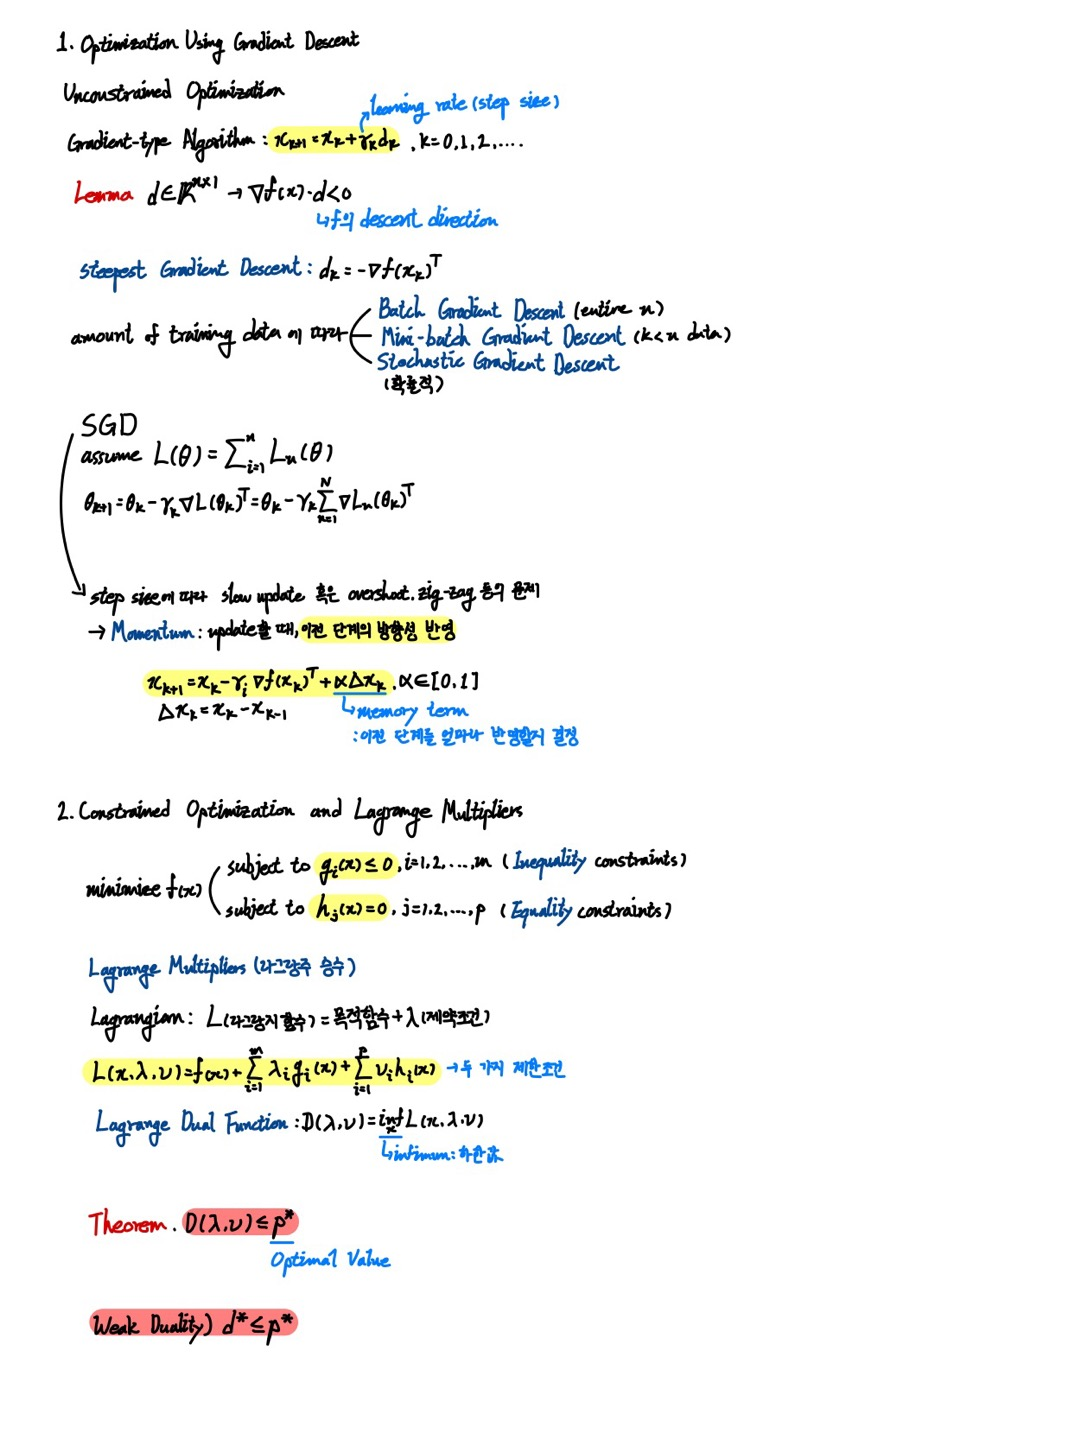 1. Optimization Using Gradient Descent
Unconstrained Optimization
↗learning rate (step size)
Gradient-type Algorithm : x_{k+1} = x_k + γ_k d_k , k=0,1,2,....
Lemma d∈ℝ^{n×1} → ∇f(x)·d<0
↳f의 descent direction
Steepest Gradient Descent : d_k = -∇f(x_k)^T
Batch Gradient Descent (entire n)
amount of training data에 따라 Mini-batch Gradient Descent (k<n data)
Stochastic Gradient Descent
(확률적)
SGD
assume L(θ) = ∑_{i=1}^{n} L_n(θ)
θ_{k+1} = θ_k - γ_k ∇L(θ_k)^T = θ_k - γ_k ∑_{n=1}^{N} ∇L_n(θ_k)^T
step size에 따라 slow update 혹은 overshoot, zig-zag 등의 문제
→ Momentum : update할 때, 이전 단계의 방향성 반영
x_{k+1} = x_k - γ_i ∇f(x_k)^T + α△x_k , α∈[0,1]
△x_k = x_k - x_{k-1}
↳memory term
: 이전 단계를 얼마나 반영할지 결정
2. Constrained Optimization and Lagrange Multipliers
subject to g_i(x) ≤ 0, i=1,2,...,m (Inequality constraints)
minimize f(x)
subject to h_j(x)=0, j=1,2,...,p (Equality constraints)
Lagrange Multipliers (라그랑주 승수)
Lagrangian : L(라그랑지 함수) = 목적함수 + λ(제약조건)
L(x,λ,ν) = f(x) + ∑_{i=1}^{m} λ_i g_i(x) + ∑_{i=1}^{p} ν_i h_i(x) → 두 가지 제한조건
Lagrange Dual Function : D(λ,ν) = inf_x L(x,λ,ν)
↳infimum : 하한값
Theorem. D(λ,ν) ≤ p*
Optimal Value
Weak Duality) d* ≤ p*